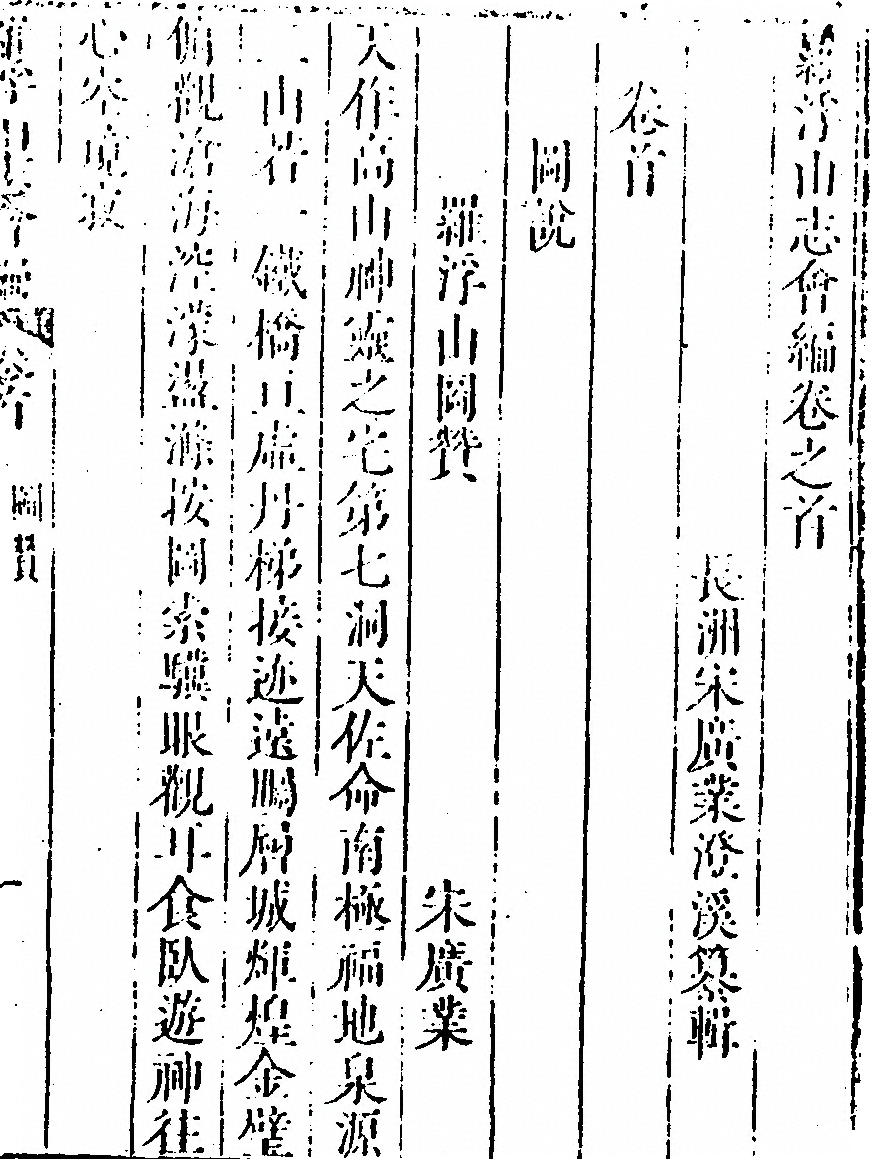 羅浮山志會編卷之首
長洲宋廣業澄溪纂輯
卷首
圖說
羅浮山圖贊
宋廣業
天作高山神靈之宅第七洞天佐命南極福地泉源
二山若一鐵橋亘虛丹梯接迹遠鵰層城煇煌金璧
俯觀滄海涳濛盪滌按圖索驥眼觀耳食臥遊神往
心空境寂
羅浮山志會編 卷首 圖贊 一